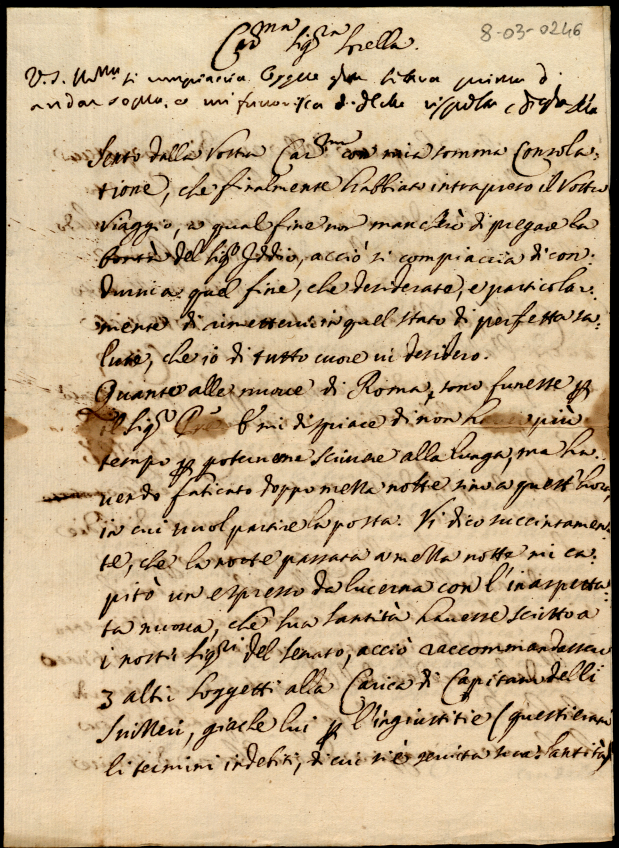 Car.ma Sig.ra Sorella.
8-03-0246
V.S. Ill.ma si compiaccia leggere q.ta lettera prima di
andar sopra, e mi favorisca di
Sento dalla Vostra Car.ma con mia somma Consola:
tione, che finalmente habbiate intrapreso il Vostro
viaggio, a qual fine non mancherò di pregare la
bontà del Sig.r Iddio, acciò si compiaccia di con:
durvi a quel fine, che desiderate, e particolar:
mente di rimettervi in quel stato di perfetta sa:
lute, che io di tutto cuore vi desidero.
Quanto alle nuove di Roma, sono funeste p
il Sig.r e mi dispiace di non haver più
tempo p potervene scrivere alla lunga, ma ha:
vendo faticato doppo mezza notte sino a quest'hora,
in cui vuol partire la posta. Vi dico succintamen:
te, che la notte passata a mezza notte mi ca:
pitò un espresso da lucerna con l'inaspetta:
ta nuova, che sua Santità havesse scritto a
i nostri Sig.ri del Senato, acciò raccommandassero
3 altri Soggetti alla Carica di Capitano delli
Svizzeri, giache lui p l'ingiustitie (questi erano
li termini indebiti, di cui si è servita sua Santità)